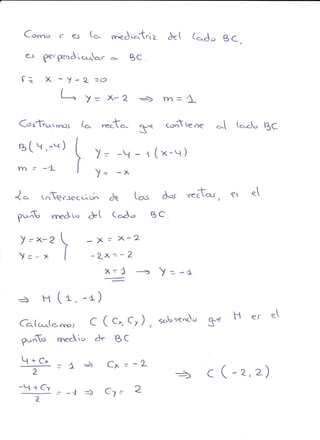 Como r es la mediatriz del lado BC,
es perpendicular a BC.
r ≡ x - y - 2 = 0
↳ y = x - 2 ⇒ m = 1
Costruimos la recta que contiene al lado BC
B(4, -4)
m = -1
y = -4 - 1(x - 4)
y = -x
La intersección de las dos rectas, es el
punto medio del lado BC.
y = x - 2
y = -x
-x = x - 2
-2x = -2
x = 1 → y = -1
⇒ M(1, -1)
Calculamos C(Cx, Cy), sabiendo que M es el
punto medio de BC
4 + Cx / 2 = 1 ⇒ Cx = -2
-4 + Cy / 2 = -1 ⇒ Cy = 2
⇒ C(-2, 2)